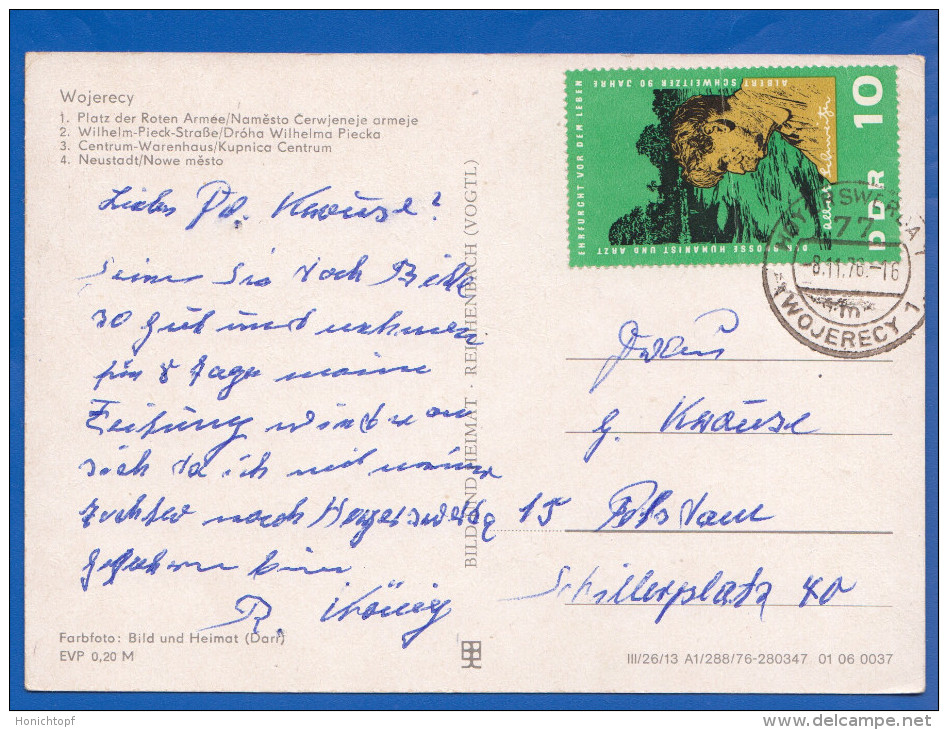 Wojerecy
1. Platz der Roten Armee/Naměsto Čerwjeneje armeje
2. Wilhelm-Pieck-Straße/Dróha Wilhelma Piecka
3. Centrum-Warenhaus/Kupnica Centrum
4. Neustadt/Nowe město
Krause!
Seien Sie doch Bitte
so gut und nehmen
für 8 Tage meine
Zeitung wieder an
sich da ich mit meiner
Tochter nach Hoyerswerda
gefahren bin
R. König
Farbfoto: Bild und Heimat (Darr)
EVP 0,20 M
BILD UND HEIMAT · REICHENBACH (VOGTL)
ALBERT SCHWEITZER 90 JAHRE
EHRFURCHT VOR DEM LEBEN
DER GROSSE HUMANIST UND ARZT
Albert Schweitzer
DDR 10
HOYERSWERDA 1
77
-8.11.76.-16
WOJERECY 1
G. Krause
15 Potsdam
Schillerplatz 40
III/26/13 A1/288/76-280347 01 06 0037
Honichtopf
www.delcampe.net